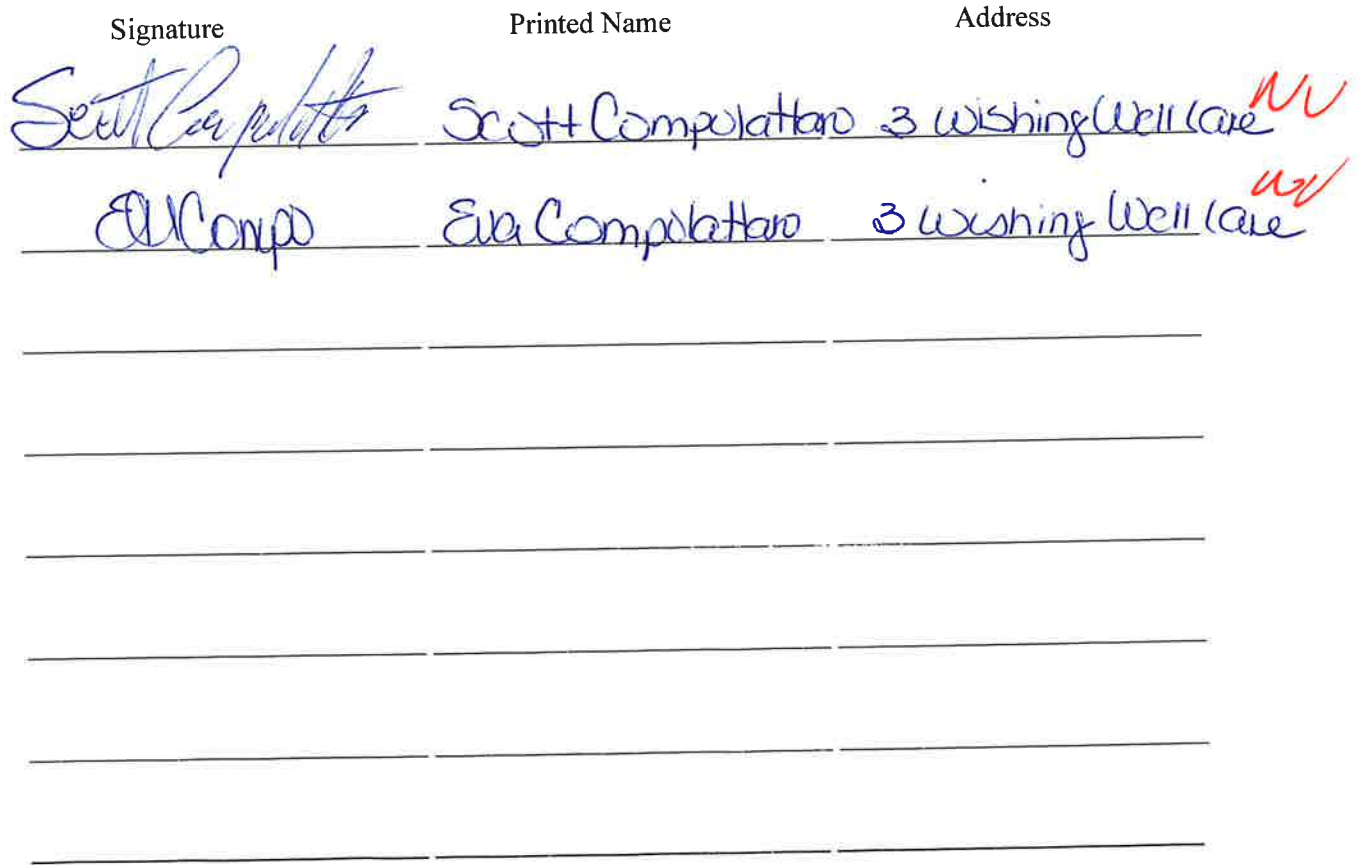 Signature Printed Name Address
Scott Compolattaro Scott Compolattaro 3 Wishing Well Lane NV
EVCompo Eva Compolattaro 3 Wishing Well Lane NV